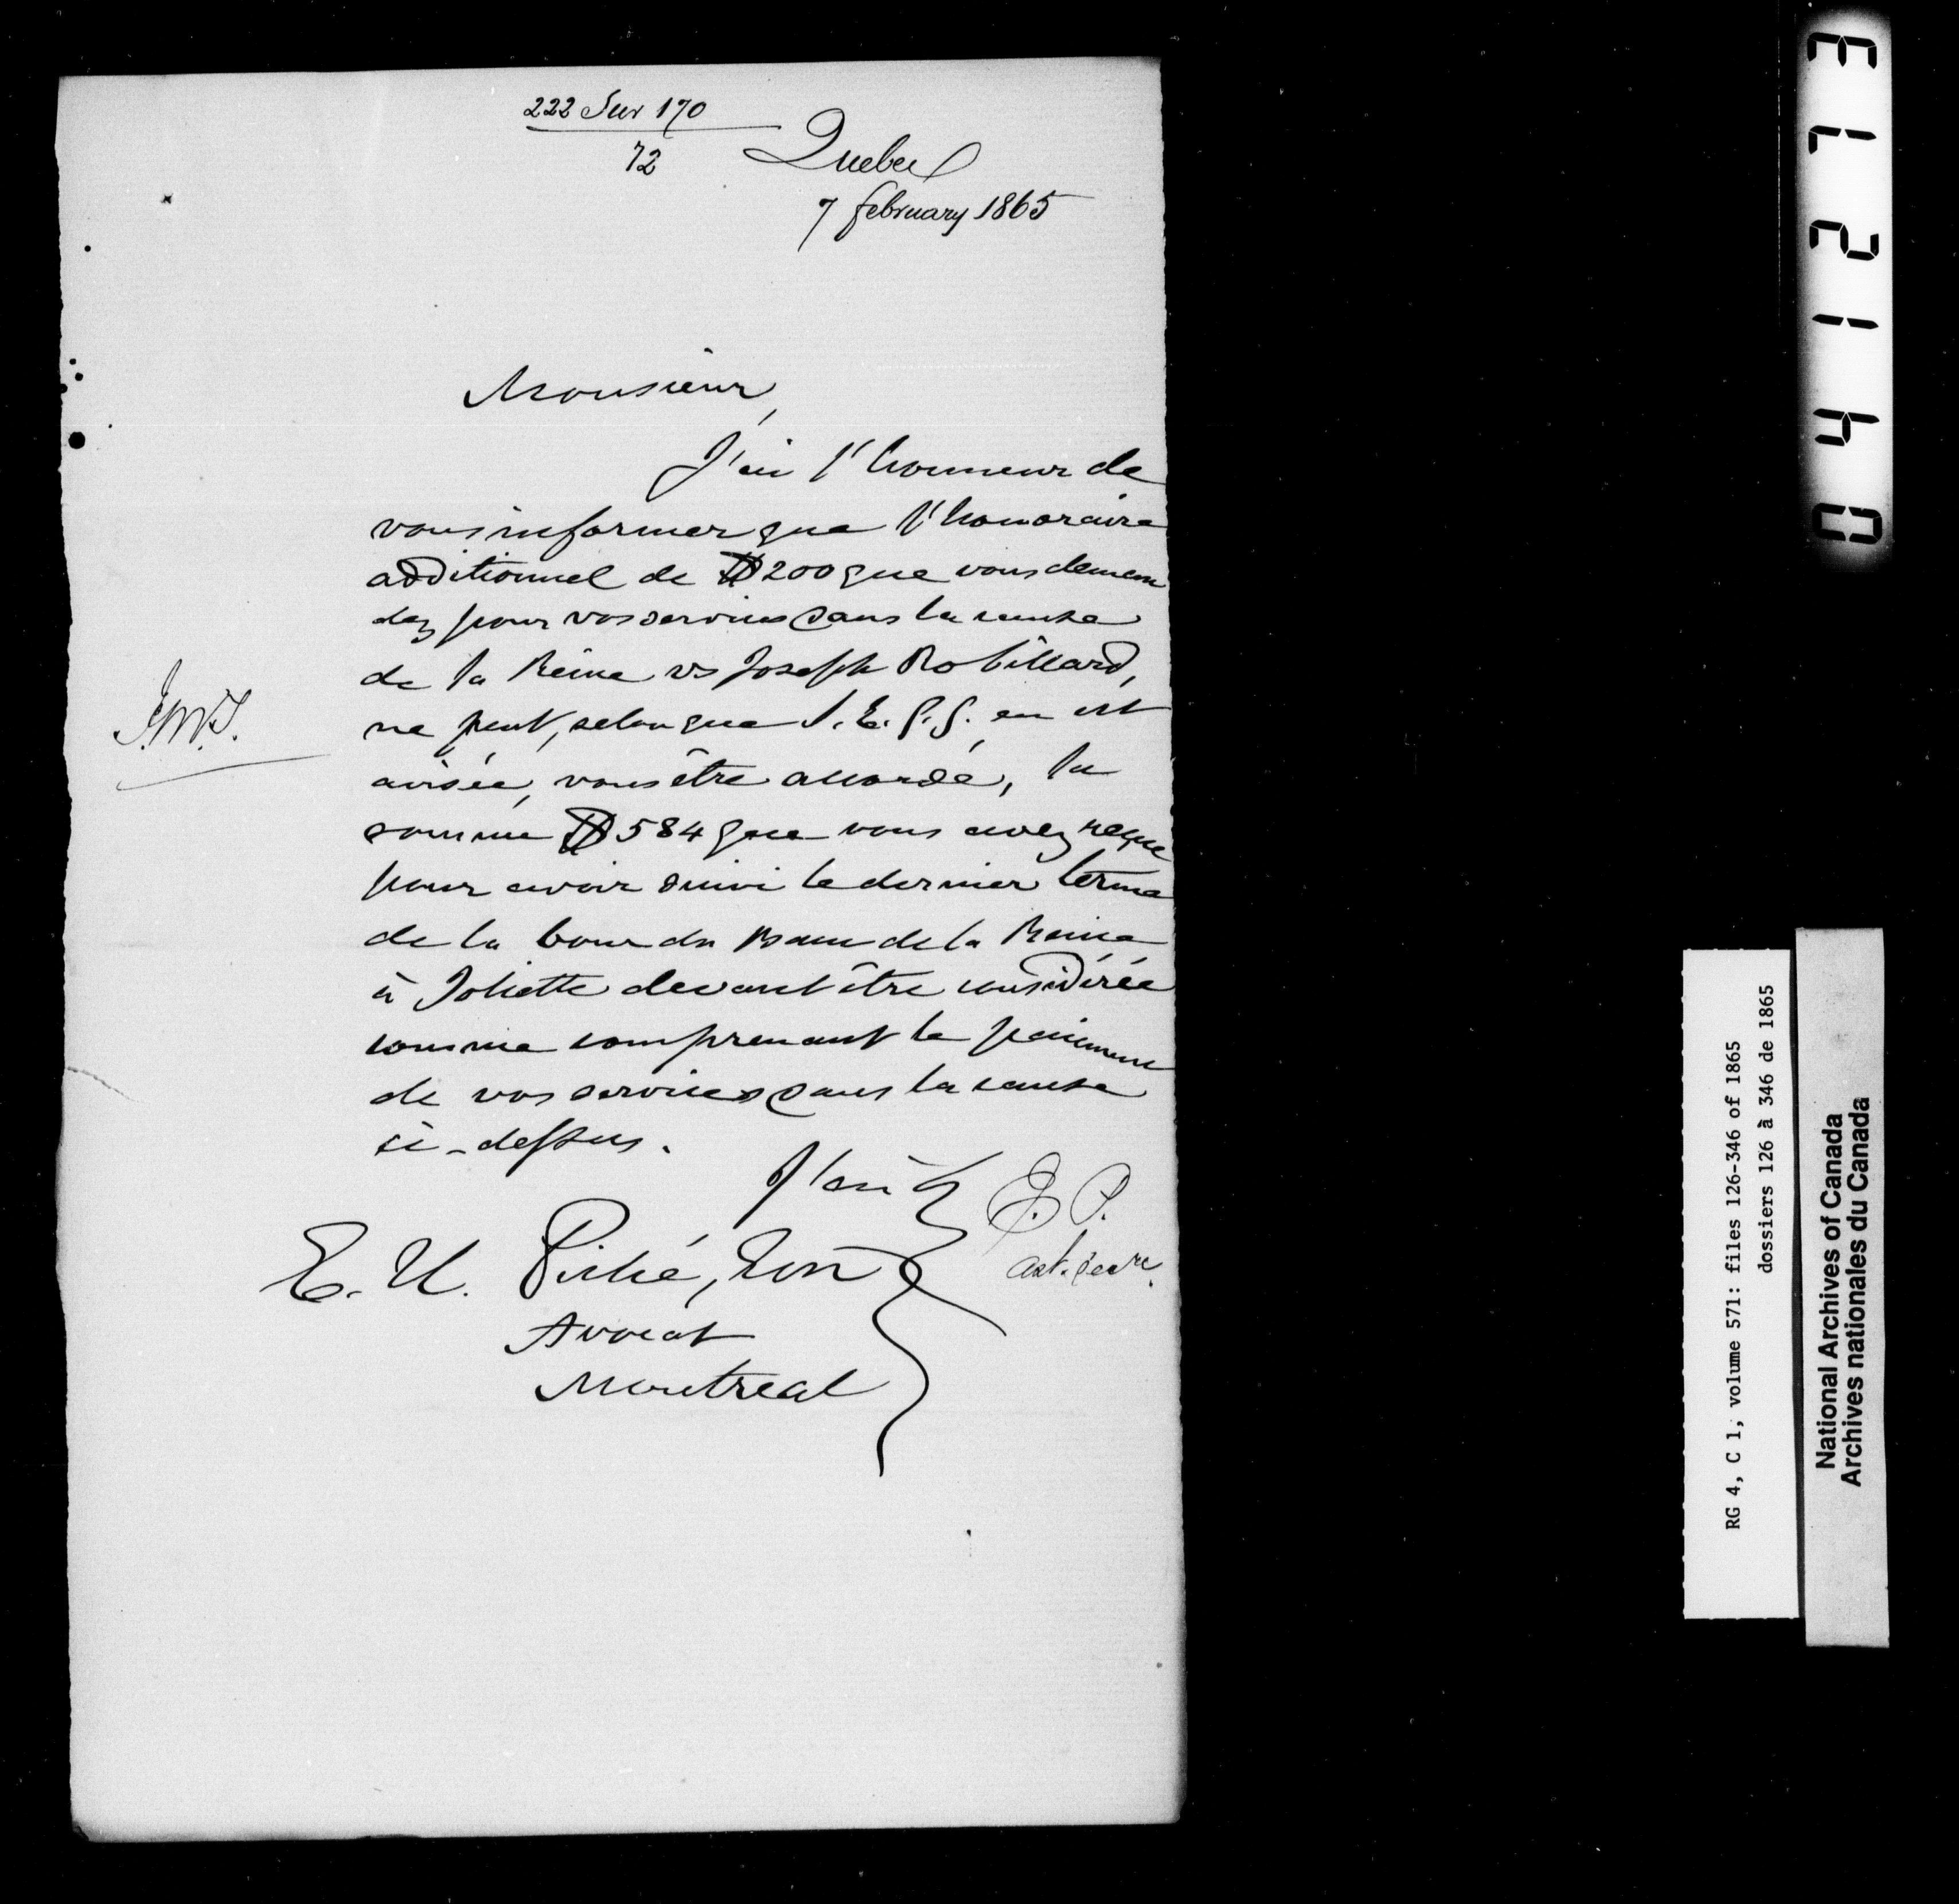 222 Sur 170
72
Quebec
7 february 1865
Monsieur,
J'ai l'honneur de
vous informer que l'honoraire
additionnel de $200 que vous deman
dez pour vos services dans la cause
de la Reine vs Joseph Robillard,
J.M.J.
ne peut, selon que S. E. G. G. en est
avisée, vous être accordé, la
somme $584 que vous avez reçue
pour avoir suivi le dernier terme
de la Cour du Banc de la Reine
à Joliette devant être considérée
comme comprenant le paiement
de vos services dans la cause
ci-dessus.
J'ai &
E. P.
E. U. Piché, Ecr
ast. secre.
Avocat
Montreal
04121713
RG 4, C 1, volume 571: files 126-346 of 1865
dossiers 126 à 346 de 1865
National Archives of Canada
Archives nationales du Canada